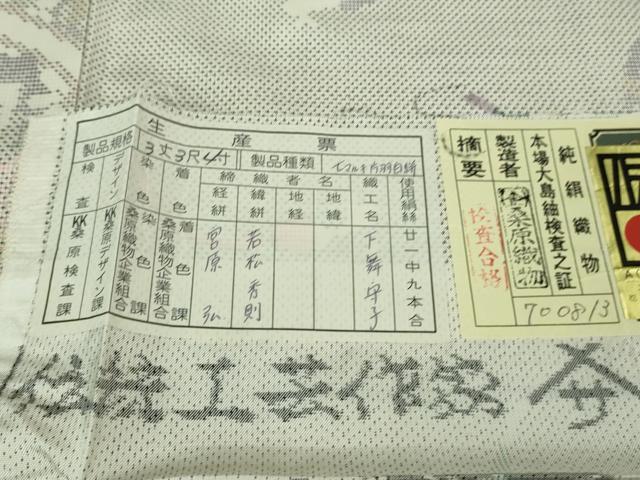 生産票
製品規格 3丈3尺4寸 製品種類
検査 デザイン 染色 着色 締織者名 織工名 使用絹絲
経絣 緯絣 地経 地緯
KK桑原検査課 KKデザイン課 桑原織物企業組合 染色課 桑原織物企業組合 着色課 宮原 弘 若松秀則 下舞守子 廿一中九本合
純絹織物
本場大島紬検査之証
製造者 桑原織物
摘要 検査合格
700813
伝統工芸作家